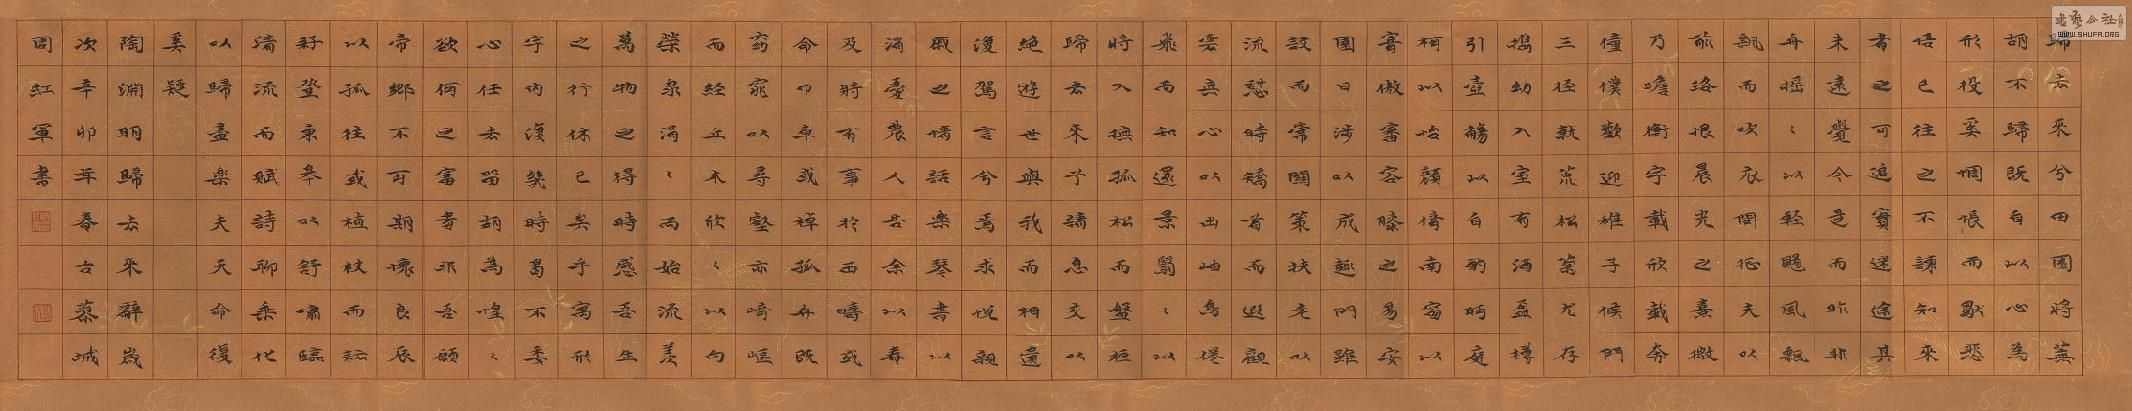 歸去來兮田園將蕪
胡不歸既自以心為
形役奚惆悵而獨悲
悟已往之不諫知來
者之可追實迷途其
未遠覺今是而昨非
舟搖〻以輕颺風飄
飄而吹衣問征夫以
前路恨晨光之熹微
乃瞻衡宇載欣載奔
僮僕歡迎稚子候門
三徑就荒松菊尤存
攜幼入室有酒盈樽
引壺觴以自酌眄庭
柯以怡顏倚南窗以
寄傲審容膝之易安
園日涉以成趣門雖
設而常關策扶老以
流憩時矯首而遐觀
雲無心以出岫鳥倦
飛而知還景翳〻以
將入撫孤松而盤桓
歸去來兮請息交以
絕遊世與我而相遺
復駕言兮焉求悅親
戚之情話樂琴書以
消憂農人告余以春
及將有事於西疇或
命巾車或棹孤舟既
窈窕以尋壑亦崎嶇
而經丘木欣〻以向
榮泉涓〻而始流羨
萬物之得時感吾生
之行休已矣乎寓形
宇內復幾時曷不委
心任去留胡為惶〻
欲何之富貴非吾願
帝鄉不可期懷良辰
以孤往或植杖而耘
耔登東皋以舒嘯臨
清流而賦詩聊乘化
以歸盡樂夫天命復
奚疑
陶淵明歸去來辭歲
次辛卯年春古藁城
周紅軍書
WWW.SHUFA.ORG